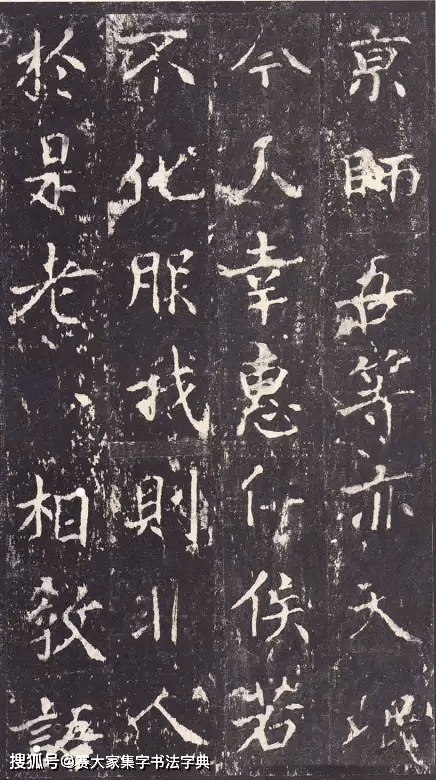 京師吾等亦天氓
今天幸惠仁侯若
不化服我則非人
於是老少相教語
搜狐号@赛大家集字书法字典